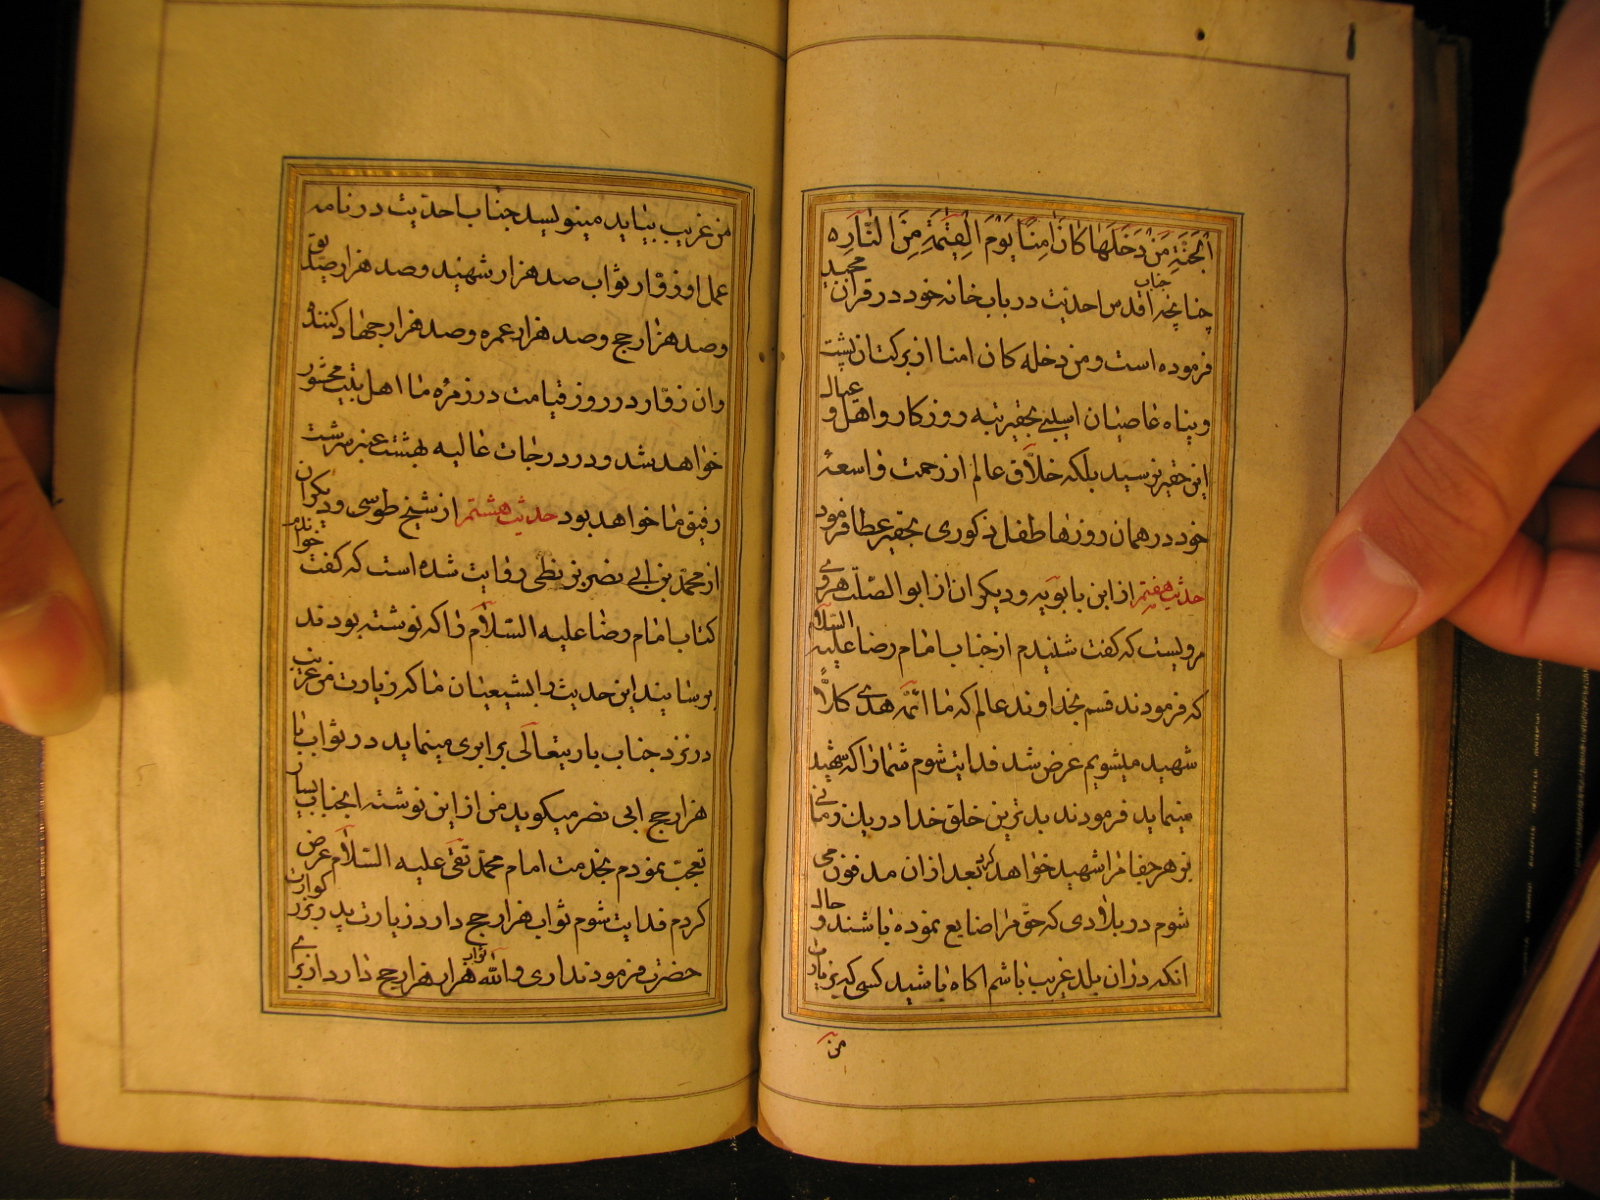 الْجَنَّةِ مَنْ دَخَلَهَا كَانَ اٰمِنًا يَوْمَ الْقِيٰمَةِ مِنَ النَّارِ ه
چنانچه جناب اقدس احدیت در باب خانه خود در قرآن مجید
فرموده است و من دخله کان امنا از برکتان پشت
و پناه عاصیان اسیبی بحقیر نبه روزکار و اهل و عیال
این حقیر نرسید بلکه خلاق عالم از رحمت واسعهٔ
خود در همان روزها طفل ذکوری بحقیر عطا فرمود
حدیث هفتم از ابن بابویه و دیکران از ابو الصلت هروی
مرویست که کفت شنیدم از جناب امام رضا علیه السلام
که فرمودند قسم بخداوند عالم که ما ائمه هدی کلاً
شهید میشویم عرض شد فدایت شوم شما را که شهید
مینماید فرمودند بدترین خلق خدا در یان زمانی
بزهر جفا مرا شهید خواهد کرد بعد ازان مدفون می
شوم در بلادی که حق مرا ضایع نموده باشند و حال
انکه دران بلد غریب باشم اکاه باشید کسی که بزیارت
من
من غریب بیاید مینویسد جناب احدیت در نامه
عمل او زوّار ثواب صد هزار شهید و صد هزار صدیق
و صد هزار حج و صد هزار عمره و صد هزار جهاد کننده
وان زوّار در روز قیامت در زمره ما اهل بیت محشور
خواهد شد و در درجات عالیه بهشت عنبر سرشت
رفیق ما خواهد بود حدیث هشتم از شیخ طوسی و دیکران
از محمد بن ابی نصر بزنطی روایت شده است که کفت خواندم
کتاب امام رضا علیه السلام را که نوشته بودند
برسانید این حدیث را بشیعیان ما که زیارت من غریب
در نزد جناب باریتعالی برابری مینماید در ثواب با
هزار حج ابی نصر میکوید من از این نوشته انجناب بسیار
تعجب نمودم بخدمت امام محمد تقی علیه السلام عرض
کردم فدایت شوم ثواب هزار حج دارد زیارت پدر بزرکوارت
حضرت فرمودند اری والله ثواب هزار هزار حج دارد از برای